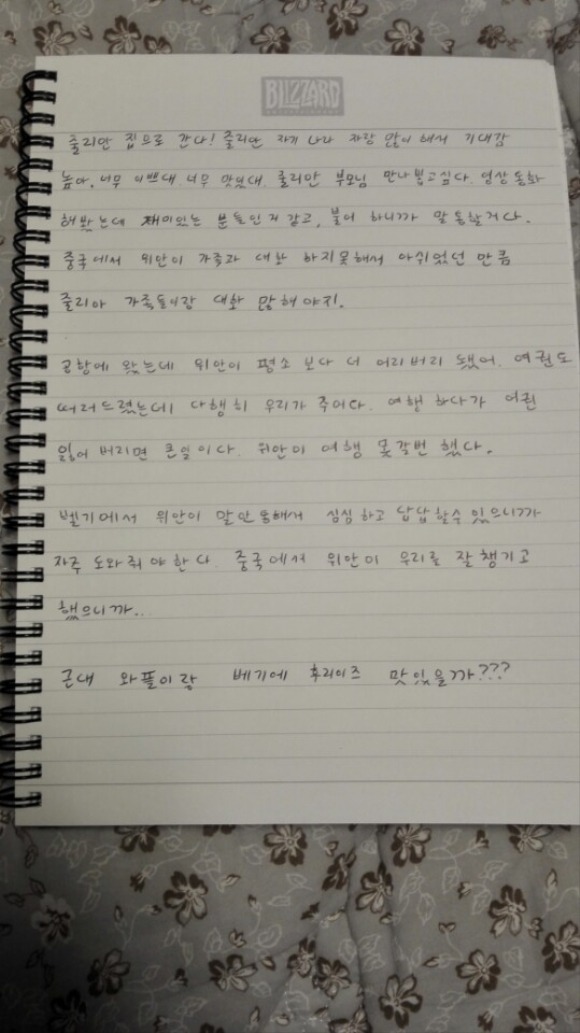 BLIZZARD
ENTERTAINMENT
줄리안 집으로 간다! 줄리안 자기 나라 자랑 많이 해서 기대감
높아. 너무 이쁘대. 너무 맛있대. 줄리안 부모님 만나 뵙고싶다. 영상통화
해봤는데 재미있는 분들인거 같고, 불어 하니까 말 통할거다.
중국에서 위안이 가족과 대화 하지못해서 아쉬웠던 만큼
줄리아 가족들이랑 대화 많혀야지.
공항에 왔는데 위안이 평소 보다 더 어리버리 됐어. 여권도
떠러드렸는데 다행히 우리가 주어다. 여행 하다가 여권
잃어 버리면 큰일이다. 위안이 여행 못갈번 했다.
벨기에서 위안이 말안통해서 심심하고 답답할수 있으니까
자주 도와줘야한다. 중국에서 위안이 우리를 잘챙기고
했으니까..
근대 와플이랑 베기에 후라이즈 맛있을까???